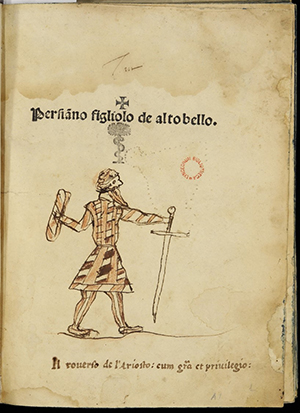 Persiāno figliolo de altobello.
Il roverso de l'Ariosto: cum grã et privilegio: